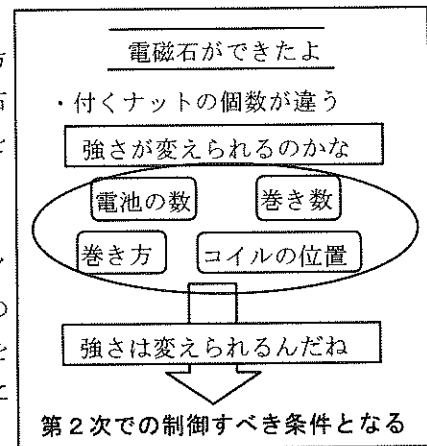 電磁石ができたよ
・付くナットの個数が違う
強さが変えられるのかな
電池の数 巻き数
巻き方 コイルの位置
強さは変えられるんだね
第2次での制御すべき条件となる